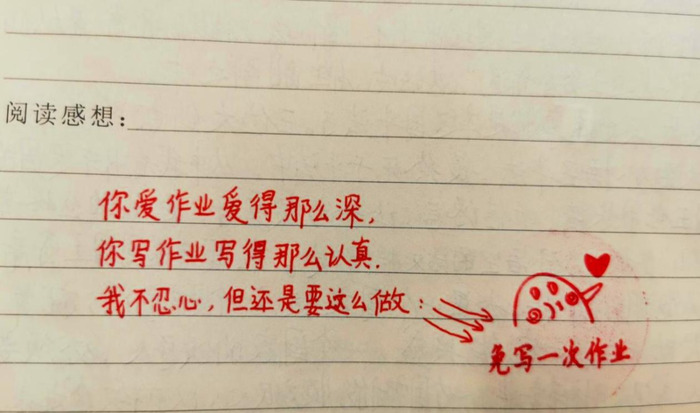 阅读感想：
你爱作业爱得那么深，
你写作业写得那么认真．
我不忍心，但还是要这么做：
免写一次作业